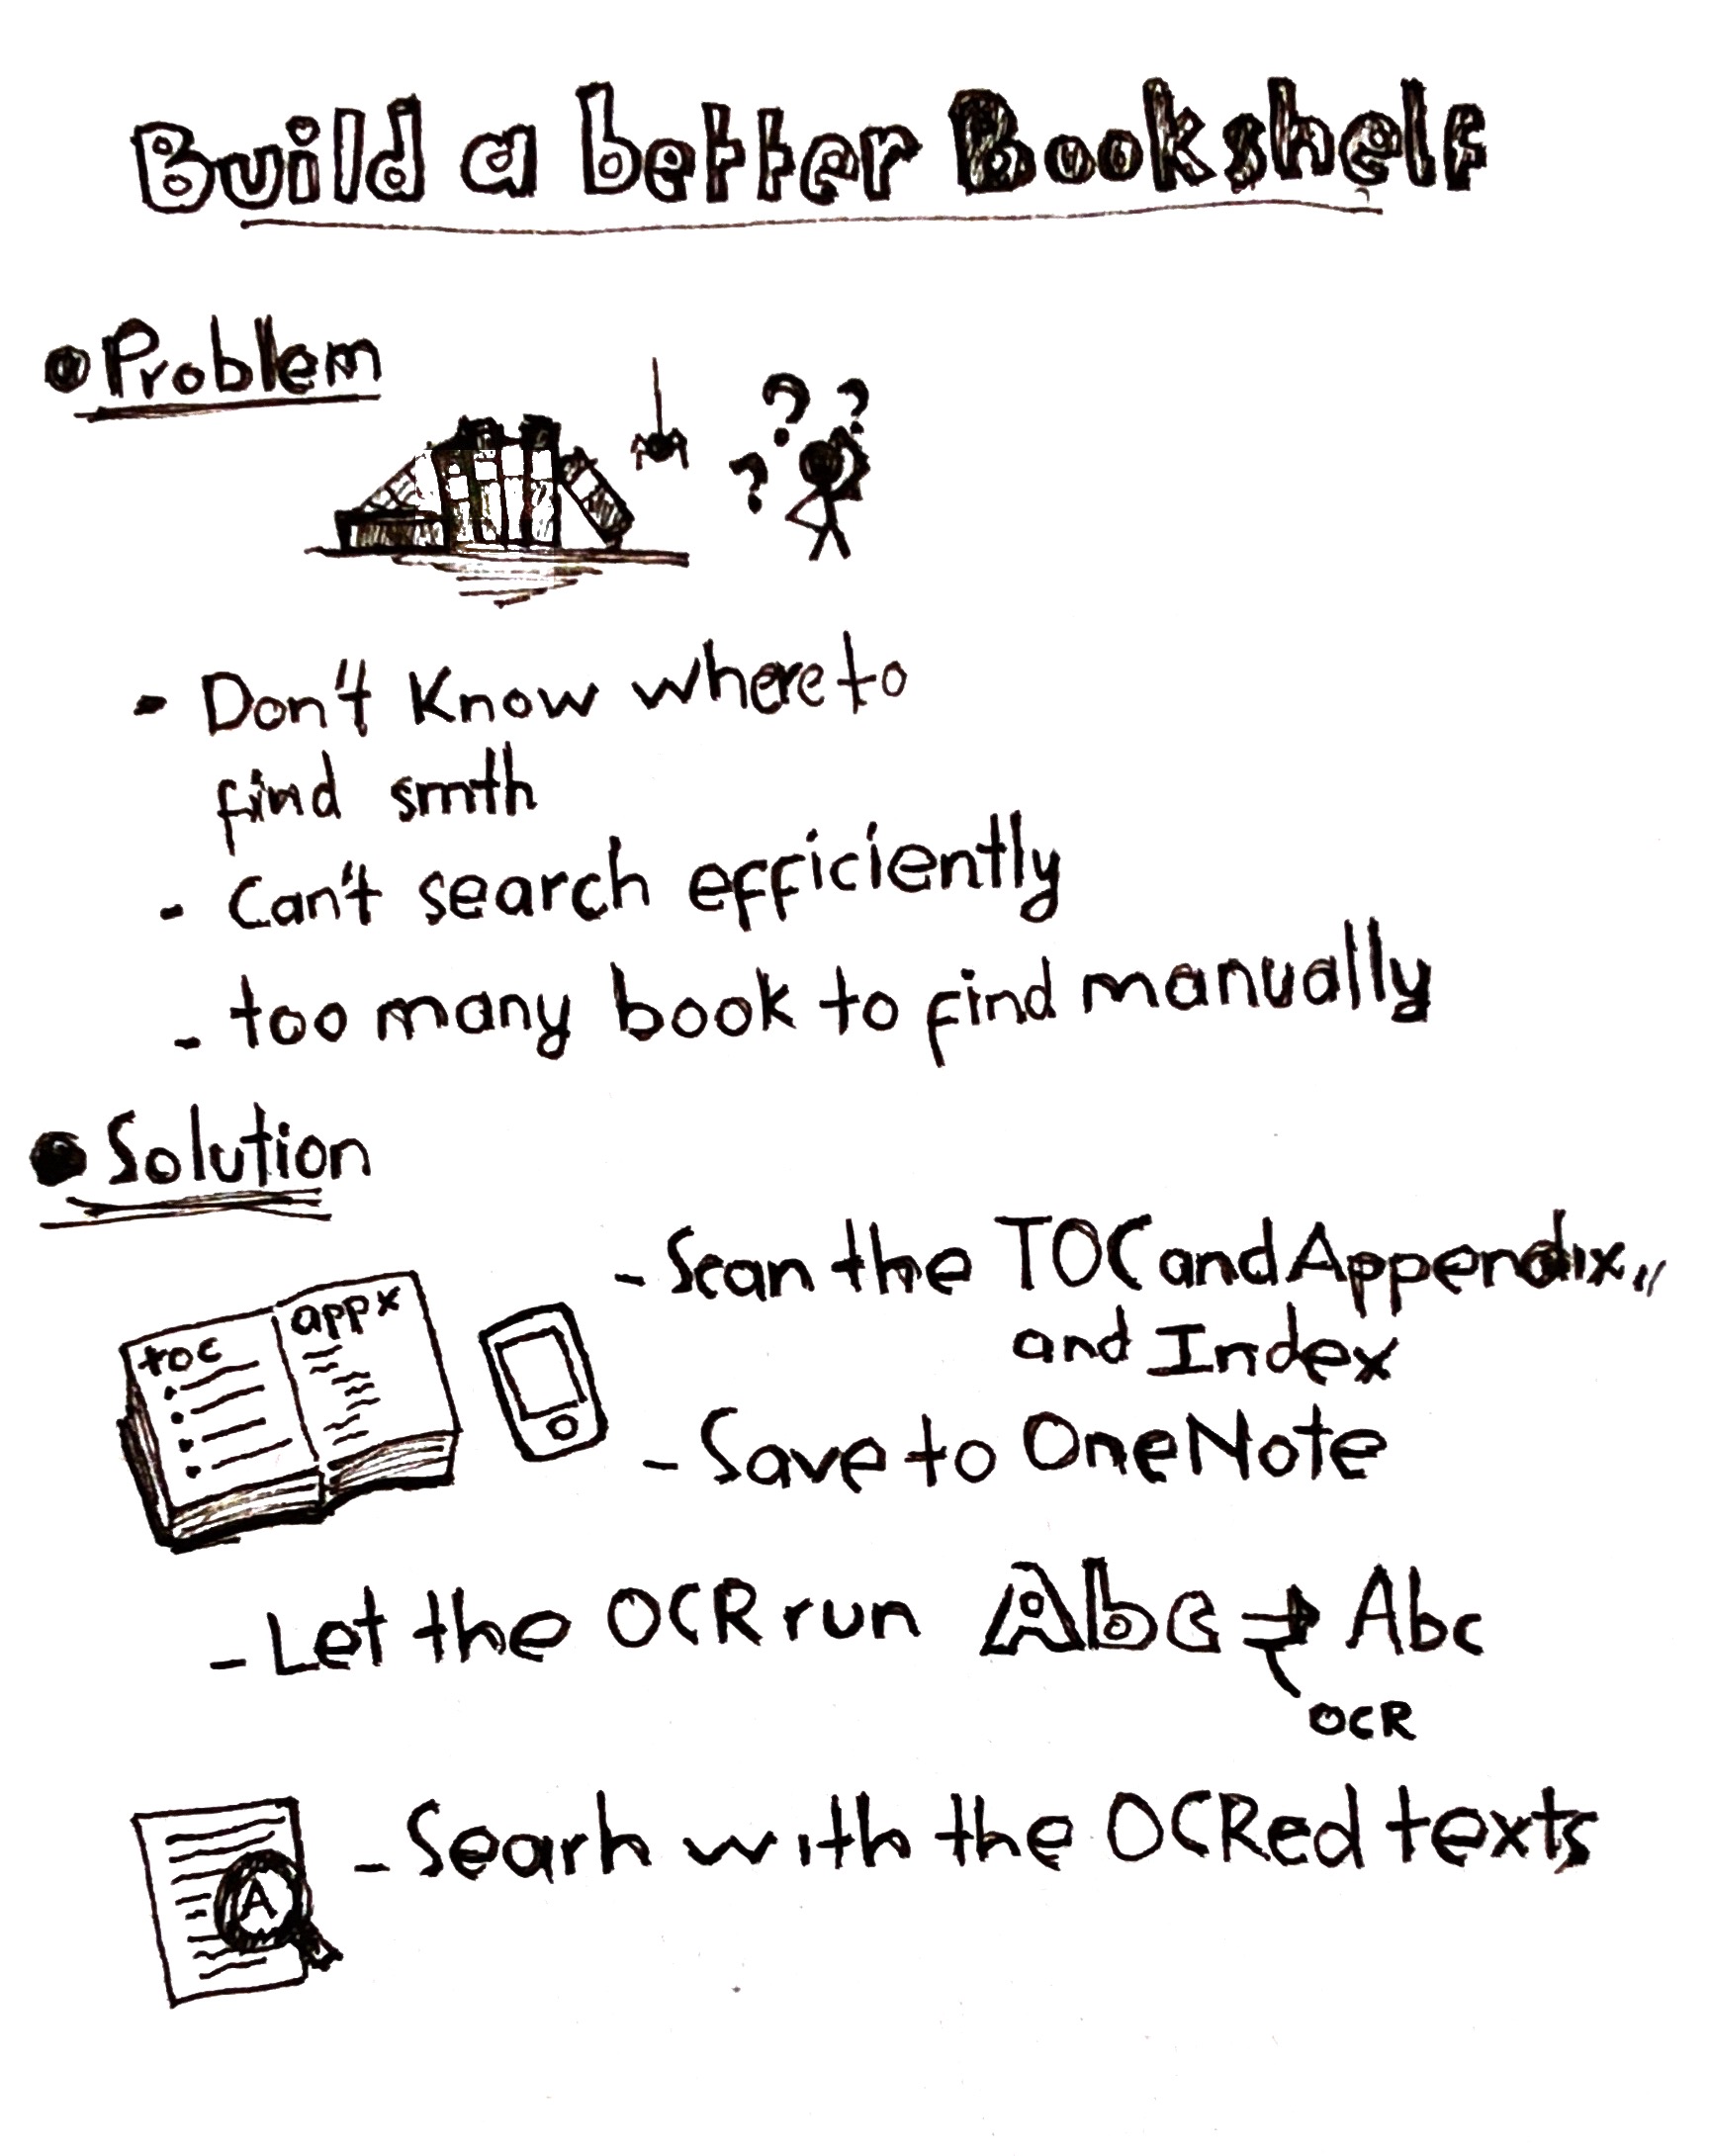 Build a better Bookshelf
• Problem
? ?
?
- Don't know where to
find smth
- Can't search efficiently
- too many book to find manually
• Solution
- Scan the TOC and Appendix,,
and Index
toc appx
- Save to OneNote
- Let the OCR run Abc → Abc
OCR
- Searh with the OCRed texts
A